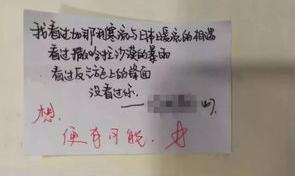 我看过加那利寒流与日本暖流的相遇
看过撒哈拉沙漠的暴雨
看过反方向上的锋面
没看过你
——
想，
便有可能.